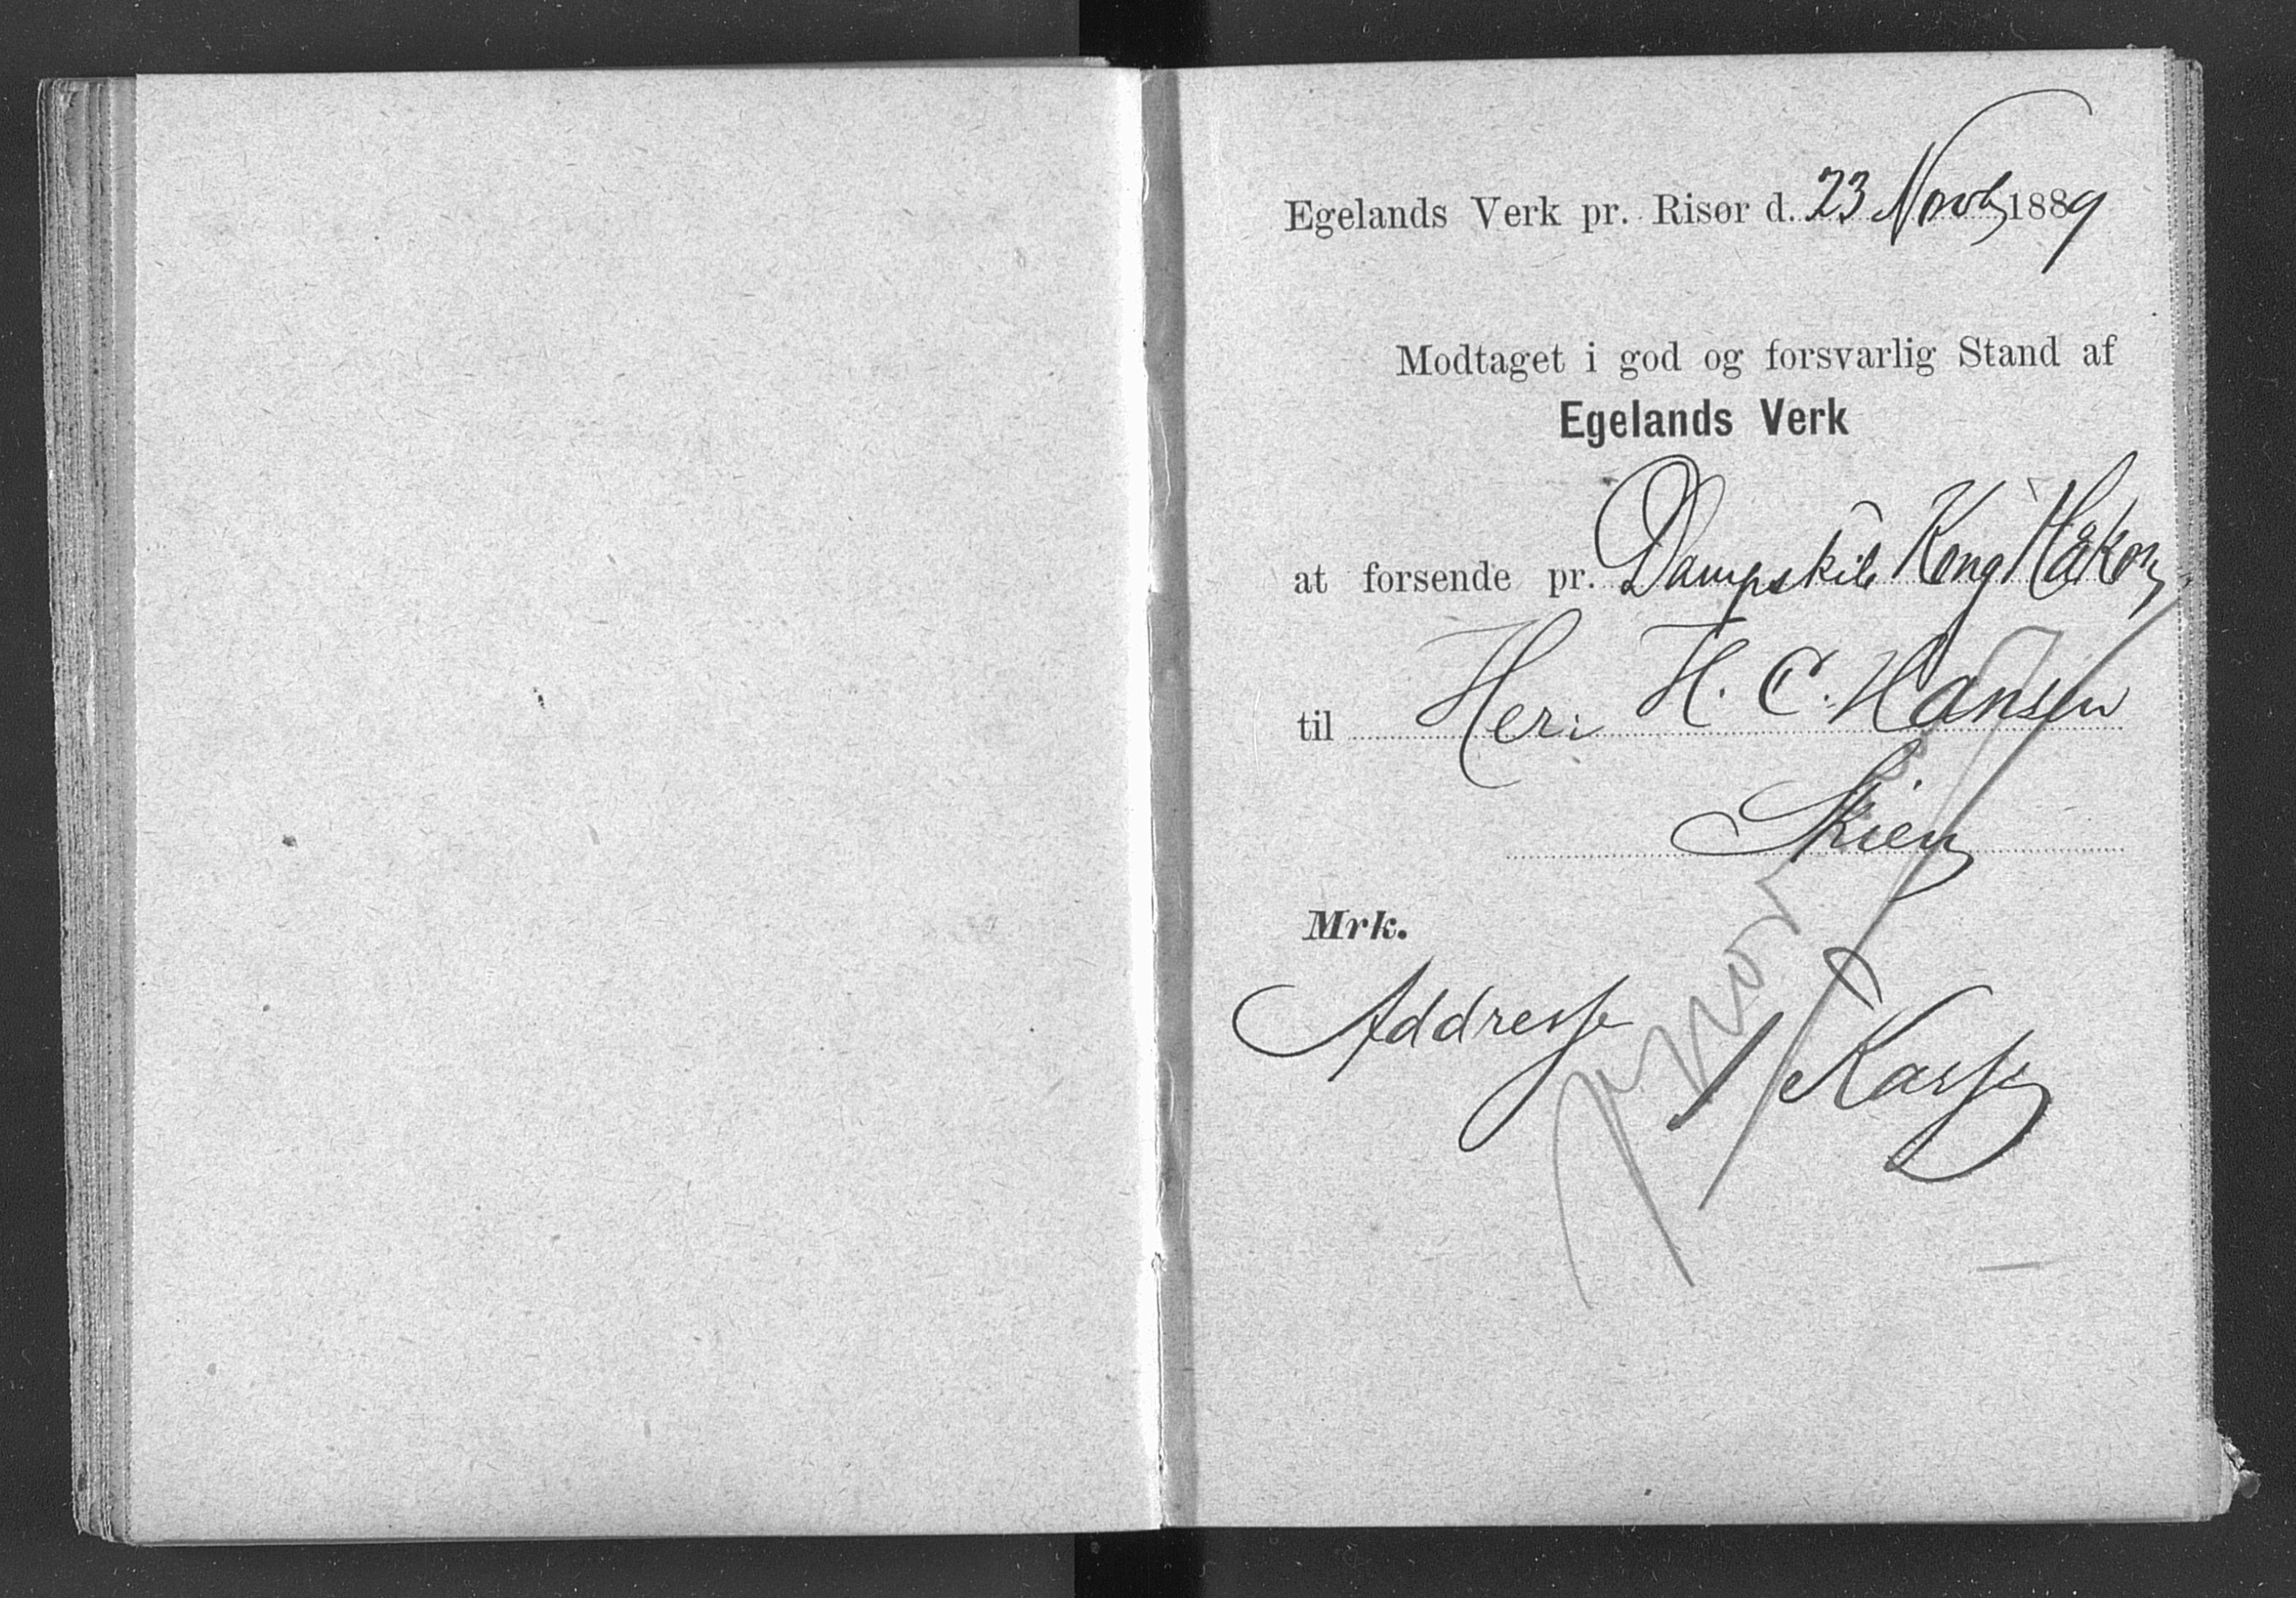 Egelands Verk pr. Risør d. 23 Novb 1889
Modtaget i god og forsvarlig Stand af
Egelands Verk
at forsende pr. Dampskib Kong Håkon
til Herr H. C. Hansen
Skien
Mrk.
Addresse
1 Kasse